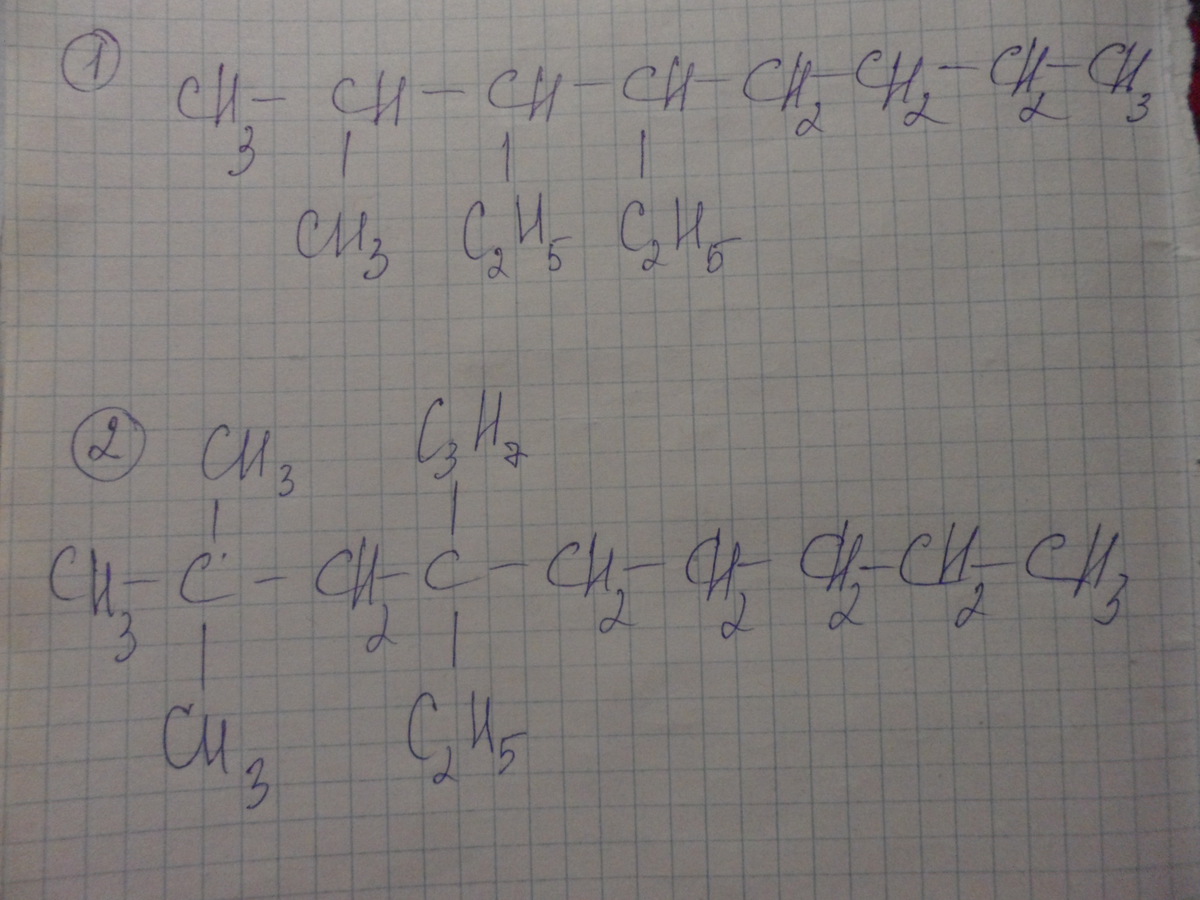 ① CH3 – CH – CH – CH – CH2 – CH2 – CH2 – CH3
| | |
CH3 C2H5 C2H5
② CH3 C3H7
| |
CH3 – C – CH2 – C – CH2 – CH2 – CH2 – CH2 – CH3
| |
CH3 C2H5